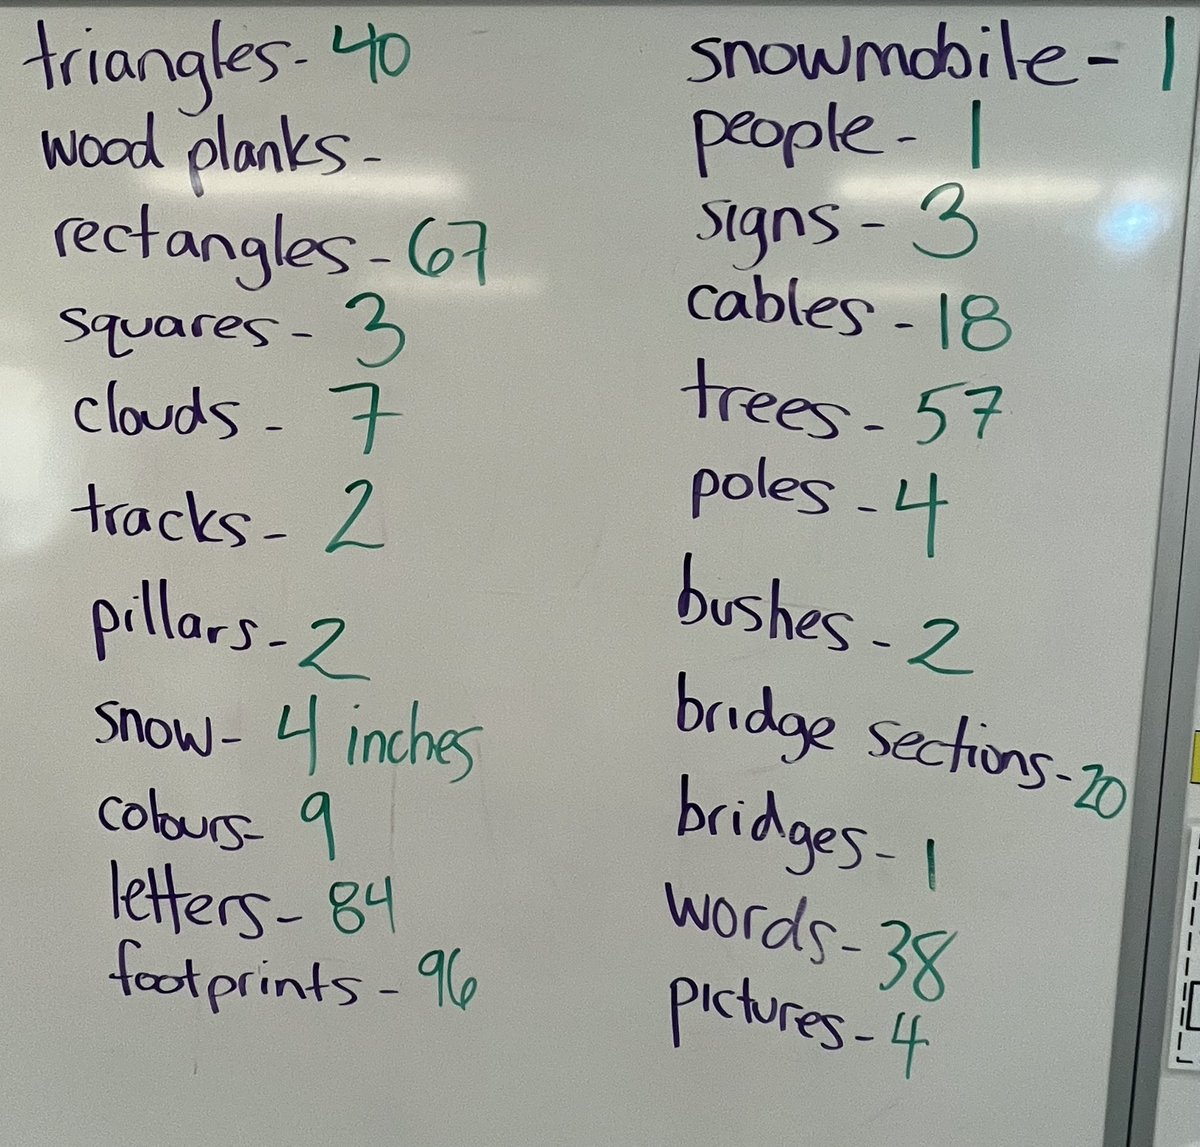 triangles- 40
wood planks-
rectangles- 67
squares- 3
clouds- 7
tracks- 2
pillars- 2
snow- 4 inches
colours- 9
letters- 84
footprints- 96
snowmobile- 1
people- 1
signs- 3
cables- 18
trees- 57
poles- 4
bushes- 2
bridge sections- 20
bridges- 1
words- 38
pictures- 4